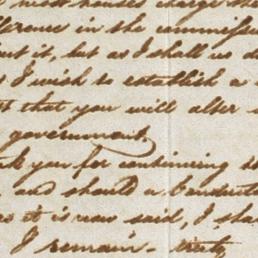 most houses charge the
difference in the commission
but it, but as I shall us d
I wish to establish a
t that you will alter
government,
k you for continuing
and should a
it is now said, I sha
I remain